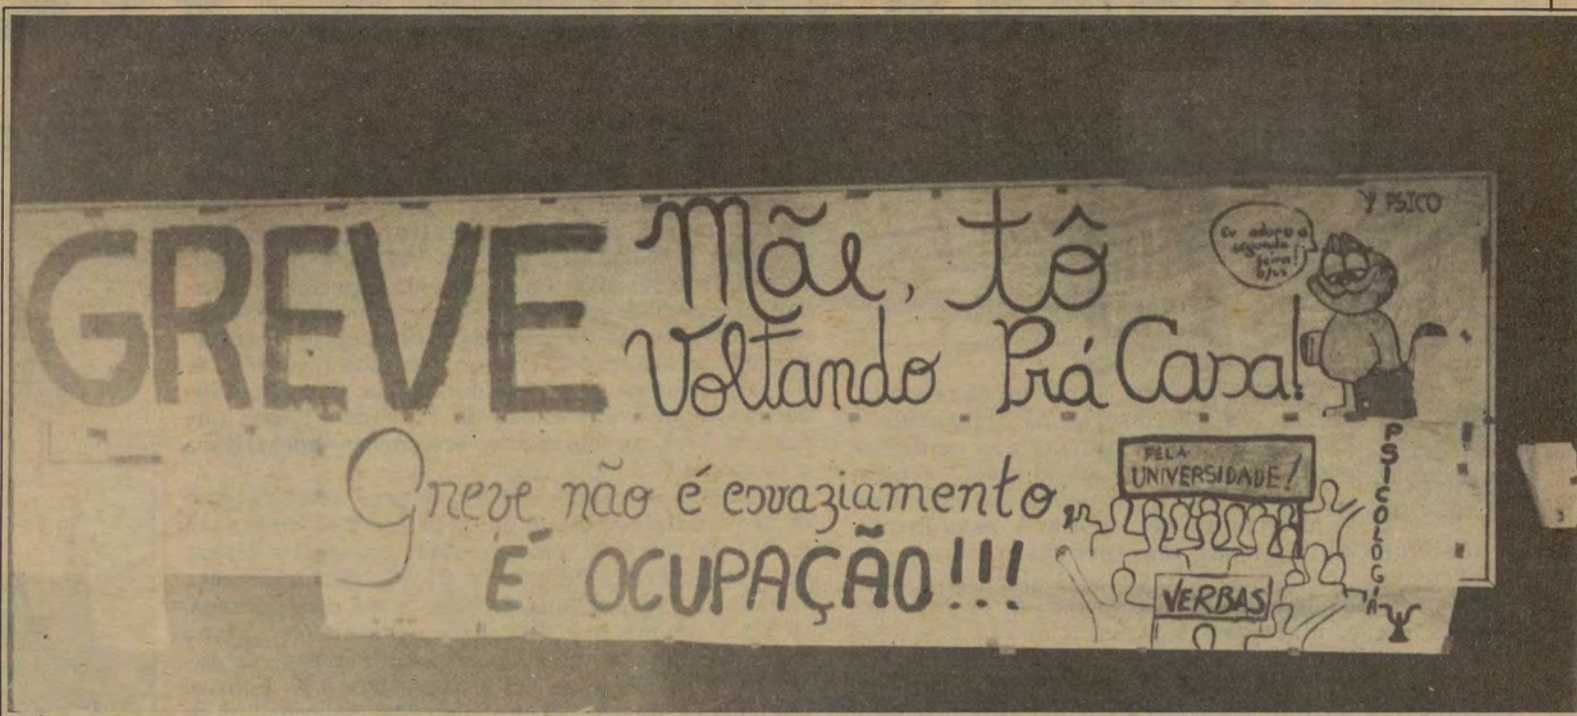 GREVE
Mãe, tô
Voltando Prá Casa!
Eu adoro a
segunda
feira!
Ψ PSICO
Greve não é esvaziamento
É OCUPAÇÃO!!!
PELA
UNIVERSIDADE!
VERBAS
PSICOLOGIA